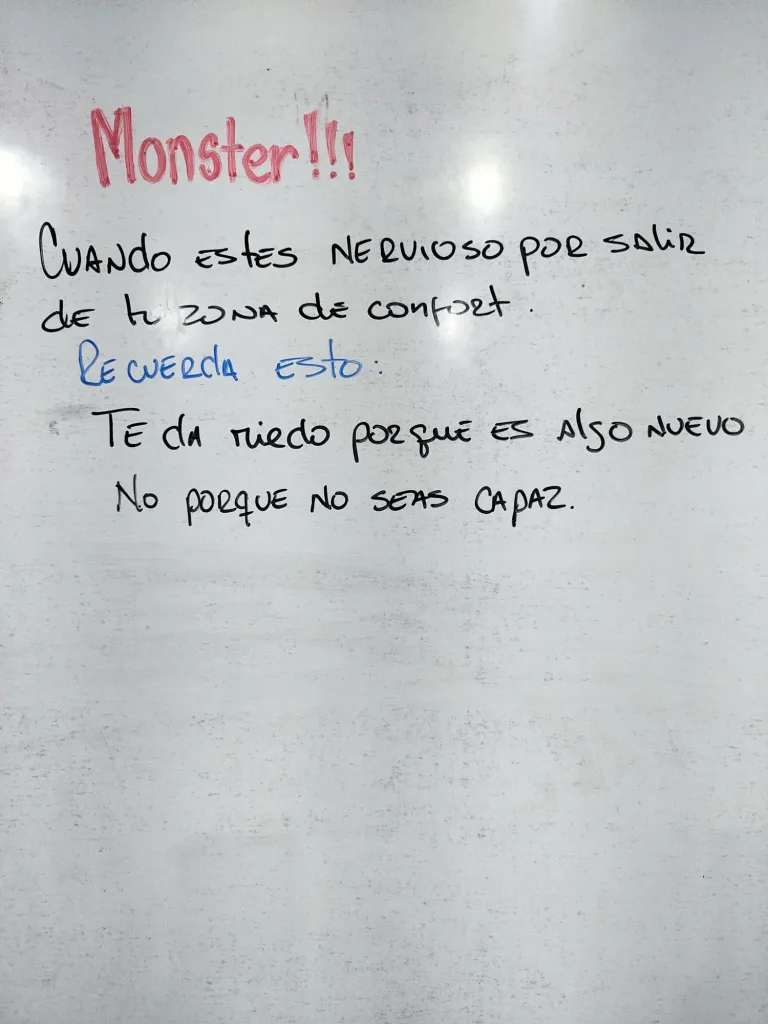 Monster!!!
CUANDO ESTES NERVIOSO POR SALIR
DE tu ZONA DE CONFORT.
RECUERDA ESTO:
TE DA MIEDO PORQUE ES ALGO NUEVO
No PORQUE NO SEAS CAPAZ.